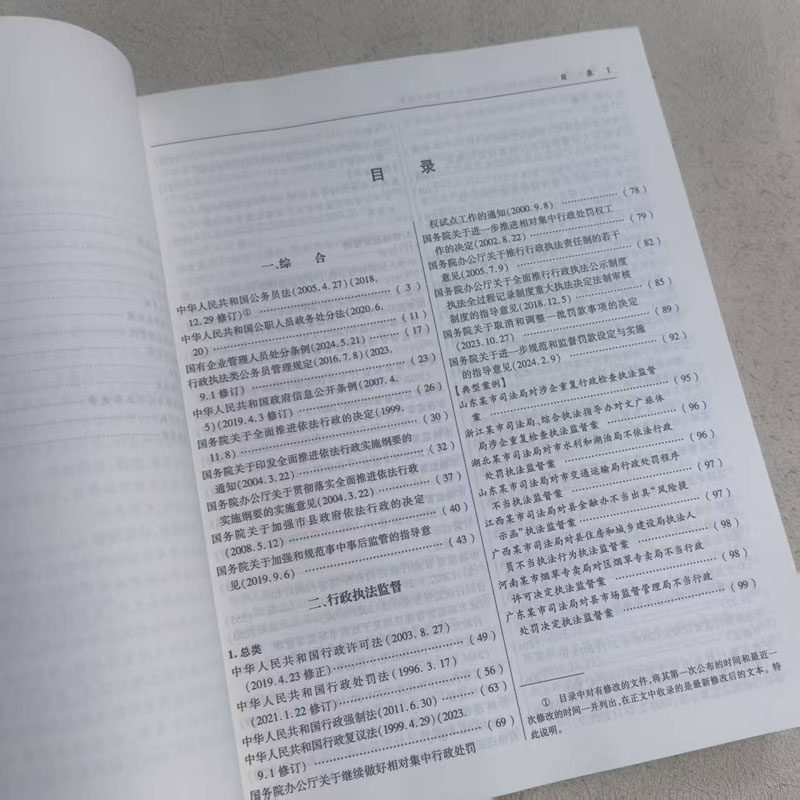 目 录 1
目 录
一、综 合
中华人民共和国公务员法(2005.4.27)(2018.
12.29 修订)① ( 3 )
中华人民共和国公职人员政务处分法(2020.6.
20) ( 11 )
国有企业管理人员处分条例(2024.5.21) ( 17 )
行政执法类公务员管理规定(2016.7.8)(2023.
9.1 修订) ( 23 )
中华人民共和国政府信息公开条例(2007.4.
5)(2019.4.3 修订) ( 26 )
国务院关于全面推进依法行政的决定(1999.
11.8) ( 30 )
国务院关于印发全面推进依法行政实施纲要的
通知(2004.3.22) ( 32 )
国务院办公厅关于贯彻落实全面推进依法行政
实施纲要的实施意见(2004.3.22) ( 37 )
国务院关于加强市县政府依法行政的决定
(2008.5.12) ( 40 )
国务院关于加强和规范事中事后监管的指导意
见(2019.9.6) ( 43 )
二、行政执法监督
1. 总类
中华人民共和国行政许可法(2003.8.27)
(2019.4.23 修正) ( 49 )
中华人民共和国行政处罚法(1996.3.17)
(2021.1.22 修订) ( 56 )
中华人民共和国行政强制法(2011.6.30) ( 63 )
中华人民共和国行政复议法(1999.4.29)(2023.
9.1 修订) ( 69 )
国务院办公厅关于继续做好相对集中行政处罚
权试点工作的通知(2000.9.8) ( 78 )
国务院关于进一步推进相对集中行政处罚权工
作的决定(2002.8.22) ( 79 )
国务院办公厅关于推行行政执法责任制的若干
意见(2005.7.9) ( 82 )
国务院办公厅关于全面推行行政执法公示制度
执法全过程记录制度重大执法决定法制审核
制度的指导意见(2018.12.5) ( 85 )
国务院关于取消和调整一批罚款事项的决定
(2023.10.27) ( 89 )
国务院关于进一步规范和监督罚款设定与实施
的指导意见(2024.2.9) ( 92 )
【典型案例】
山东某市司法局对涉企重复行政检查执法监督
案 ( 95 )
浙江某市司法局、综合执法指导办对文广旅体
局涉企重复检查执法监督案 ( 96 )
湖北某市司法局对市水利和湖泊局不依法行政
处罚执法监督案 ( 96 )
山东某市司法局对市交通运输局行政处罚程序
不当执法监督案 ( 97 )
江西某市司法局对县金融办不当出具“风险提
示函”执法监督案 ( 97 )
广西某市司法局对县住房和城乡建设局执法人
员不当执法行为执法监督案 ( 98 )
河南某市烟草专卖局对区烟草专卖局不当行政
许可决定执法监督案 ( 98 )
广东某市司法局对县市场监督管理局不当行政
处罚决定执法监督案 ( 99 )
① 目录中对有修改的文件,将其第一次公布的时间和最近一
次修改的时间一并列出,在正文中收录的是最新修改后的文本。特
此说明。